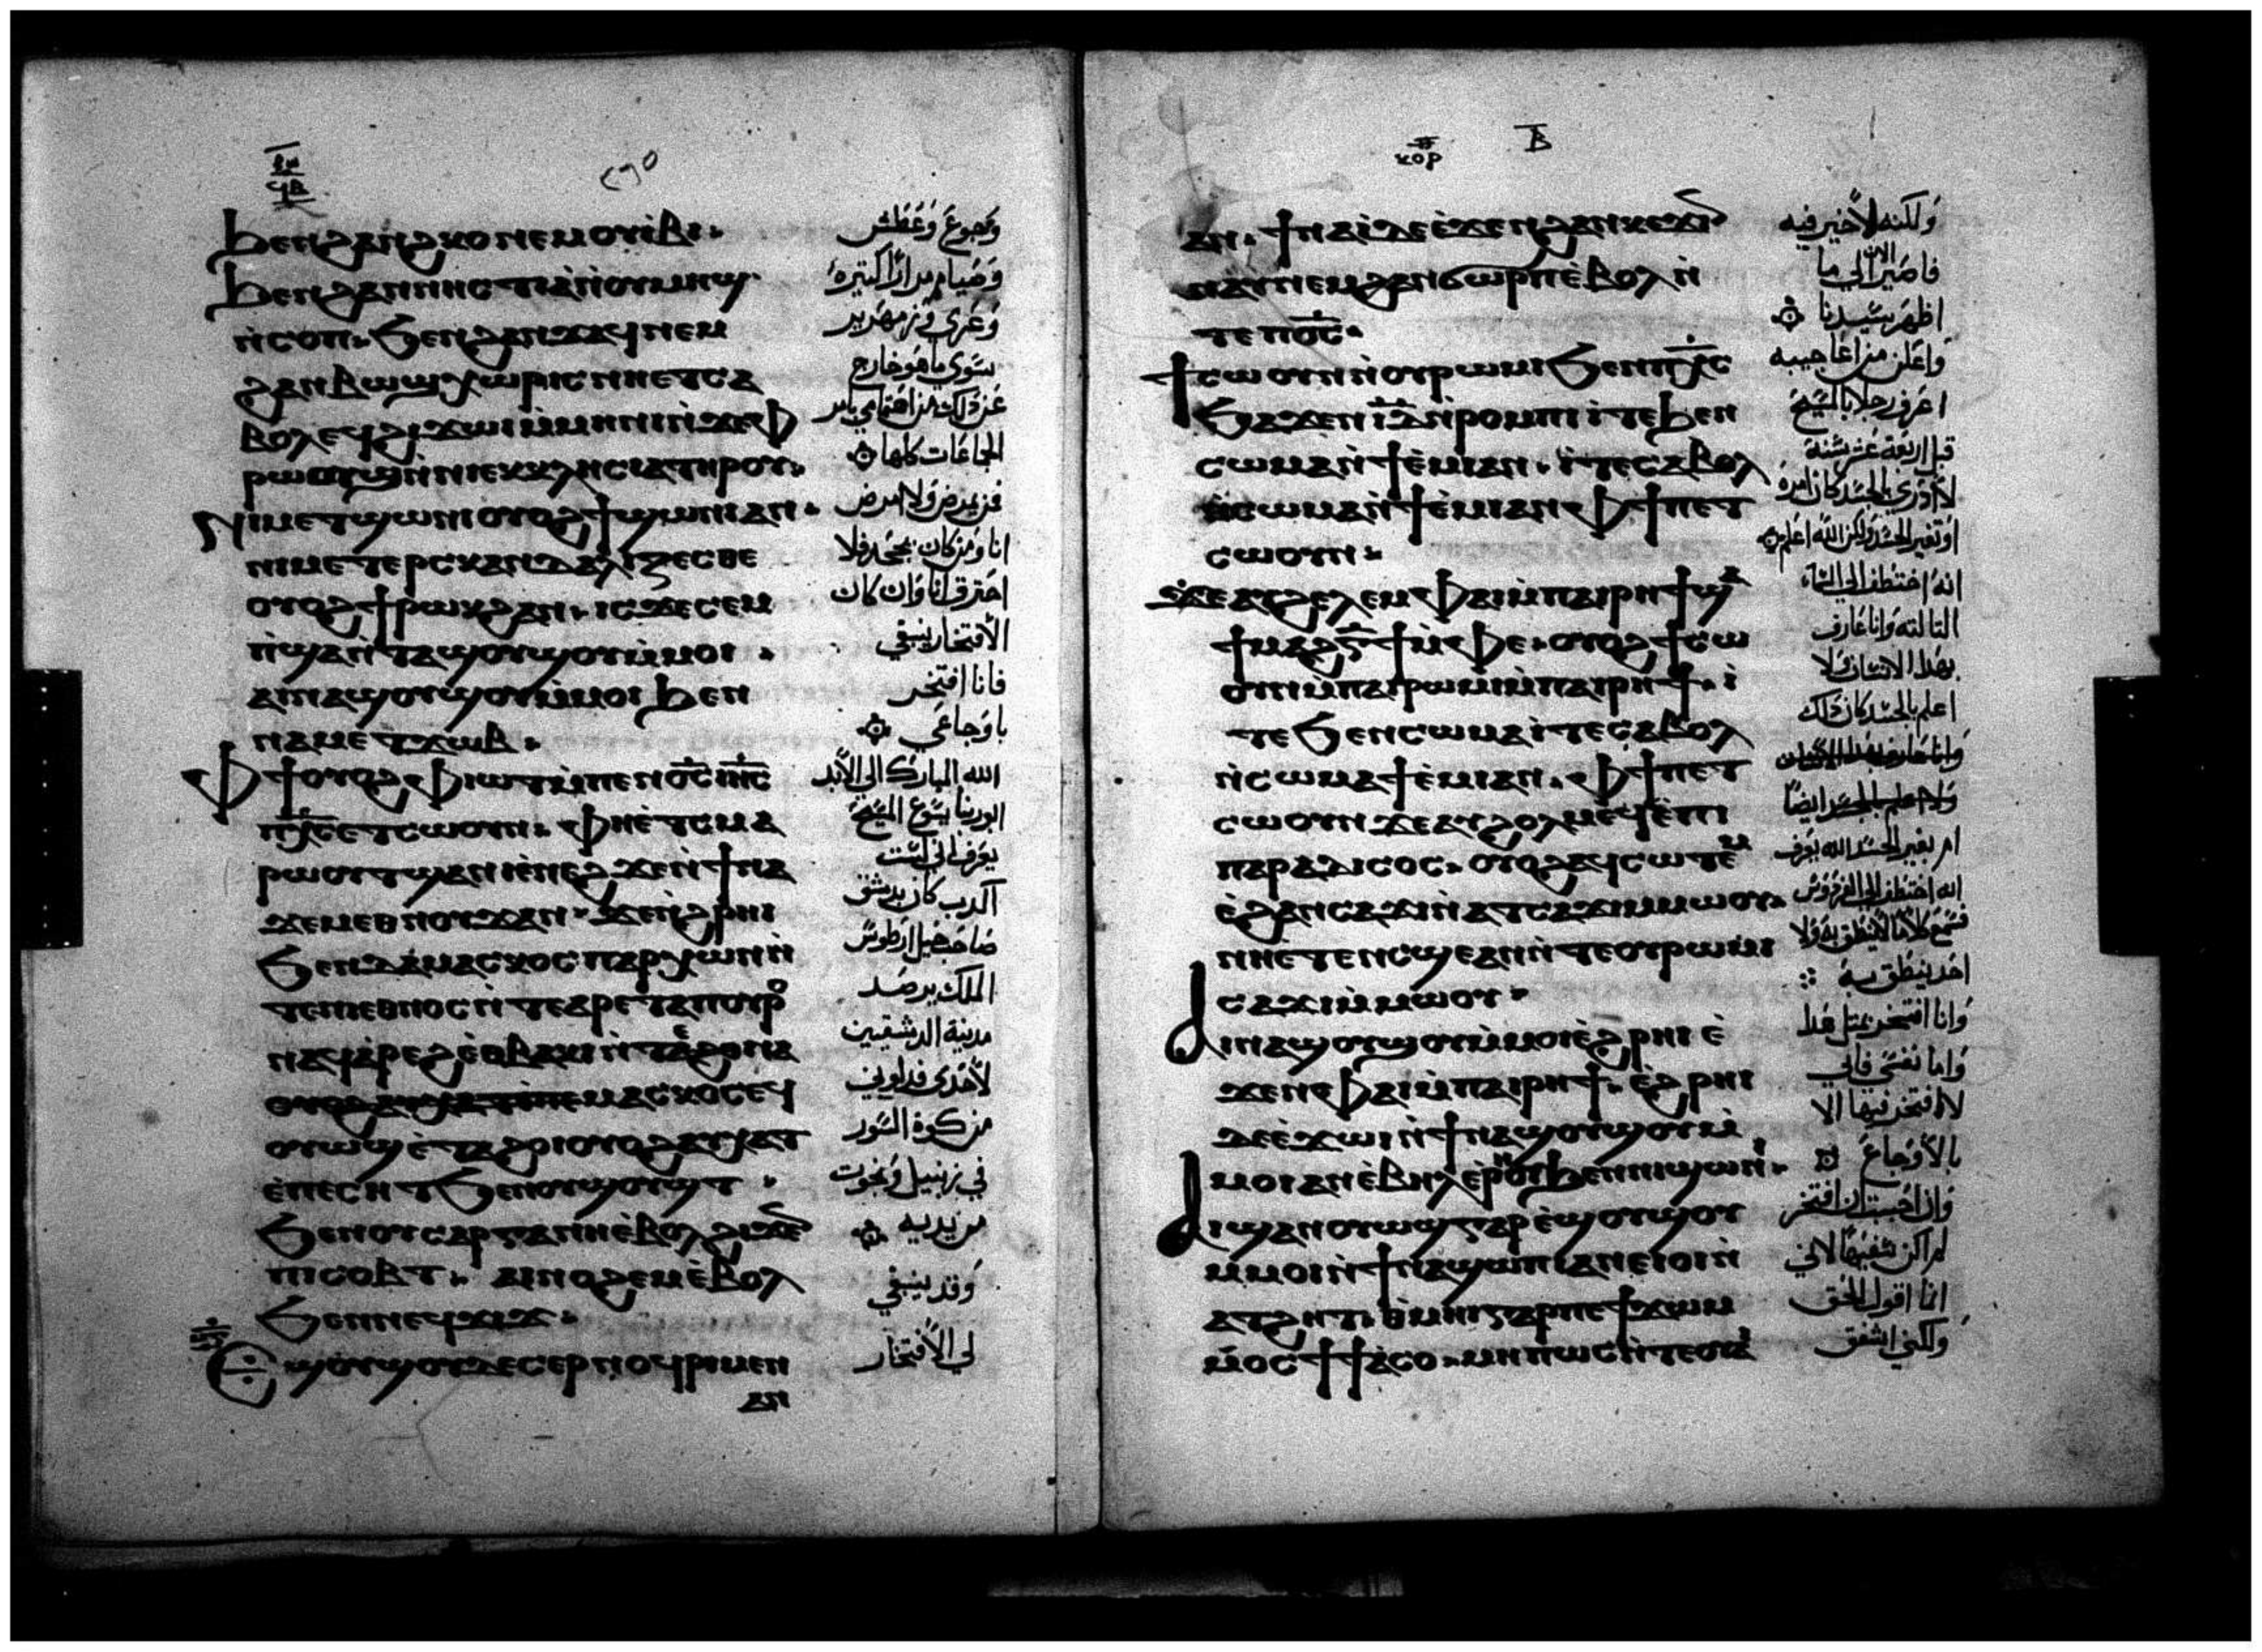 ϧⲉⲛϩⲁⲛϩⲕⲟⲛⲉⲙⲟⲩⲓ̀ⲃⲓ·
ϧⲉⲛϩⲁⲛⲛⲏⲥⲧⲓⲁⲛ̀ⲟⲩⲙⲏϣ
ⲛ̀ⲥⲟⲡ· ϧⲉⲛϩⲁⲛϫⲁϥⲛⲉⲙ
ϩⲁⲛⲃⲱϣⲭⲱⲣⲓⲥⲛⲏⲉⲧⲥⲁ
ⲃⲟⲗⲉϥϩⲓϫⲱⲓⲙ̀ⲙⲏⲛⲓⲛ̀ϫⲉⲫ
ⲣⲱⲟⲩϣⲛ̀ⲛⲓⲉⲕⲕⲗⲏⲥⲓⲁⲧⲏⲣⲟⲩ·
ⲛⲓⲙⲉⲧϣⲱⲛⲓⲟⲩⲟϩϯϣⲱⲛⲓⲁⲛ·
ⲛⲓⲙⲉⲧⲉⲣⲥⲕⲁⲛⲇⲁⲗⲓⲍⲉⲥⲑⲉ
ⲟⲩⲟϩϯⲣⲱⲕϩⲁⲛ· ⲓⲥϫⲉⲥⲉⲙ
ⲡ̀ϣⲁⲛ̀ⲧⲁϣⲟⲩϣⲟⲩⲙ̀ⲙⲟⲓ·
ⲁⲓⲛⲁϣⲟⲩϣⲟⲩⲙ̀ⲙⲟⲓϧⲉⲛ
ⲛⲁⲙⲉⲧϫⲱⲃ·
ⲫϯⲟⲩⲟϩⲫⲓⲱⲧⲙ̀ⲡⲉⲛⲟ̅ⲥ̅ⲓⲏ̅ⲥ̅
ⲡⲭ̅ⲥ̅ⲉⲧⲥⲱⲟⲩⲛ· ⲫⲏⲉ̀ⲧⲥⲙⲁ
ⲣⲱⲟⲩⲧϣⲁⲛⲓⲉ̀ⲛⲉϩϫⲉⲛ̀ϯⲛⲁ
ϫⲉⲙⲉⲑⲛⲟⲩϫⲁⲛ· ϫⲉⲛ̀ϩⲣⲏⲓ
ϧⲉⲛⲇⲁⲙⲁⲥⲕⲟⲥⲡⲁⲣⲭⲱⲛⲛ̀
ⲧⲉⲡⲓⲉⲑⲛⲟⲥⲛ̀ⲧⲉⲁⲣⲉⲧⲁⲡⲟⲩⲣⲟ
ⲛⲁϥⲁ̀ⲣⲉϩⲉ̀ⲑⲃⲁⲕⲓⲛ̀ⲧⲉ
ⲙⲁⲥⲕⲟⲥⲉϥ
ⲟⲩⲱϣⲉ̀ⲧⲁϩⲟⲓⲟⲩⲟϩⲁⲩⲭⲁⲧ
ⲉ̀ⲡⲉⲥⲏⲧϧⲉⲛⲟⲩϣⲟⲩϣⲧ·
ϧⲉⲛⲟⲩⲥⲁⲣⲅⲁⲛⲏⲉ̀ⲃⲟⲗϩⲓϫⲉⲛ
ⲡⲓⲥⲟⲃⲧ· ⲁⲓⲛⲟϩⲉⲙⲉ̀ⲃⲟⲗ
ϧⲉⲛⲛⲉϥϫⲓϫ·
ϣⲟⲩϣⲟⲩⲇⲉⲥⲉⲣⲛⲟϥⲣⲓⲙⲉⲛ
ⲁⲛ
وَجوع وَعَطش
وَصيام مرارًا كثيرة
وَعُري وَزمهرير
سوي ما هو خارج
عن ذلك من اهتمامي بامر
الجماعات كلها
فمن يمرض ولا امرض
انا وَمن كان يجحد فلا
احترق انا وَان كان
الأفتخار ينبغي
فانا افتخر
باوجاعي
الله المبارك الي الأبد
ابو ربنا يسوع المسيح
يعرف اني لست
اكدب كان بدمشق
صاحب خيل ارطوس
الملك يرصد
مدينة الدمشقيين
لأخدي فدلوني
من كوة السور
في زنبيل ونجوت
من يديه
وَقد ينبغي
لي الأفتخار
ⲃ̅
ⲁⲛ· ϯⲛⲁⲓ̀ⲇⲉⲉ̀ϫⲉⲛϩⲁⲛⲕⲉϫⲓⲛ
ⲛⲁⲩⲛⲉⲙϩⲁⲛϭⲱⲣⲡⲉ̀ⲃⲟⲗⲛ̀
ⲧⲉⲡⲟ̅ⲥ̅·
ϯⲥⲱⲟⲩⲛⲛ̀ⲟⲩⲣⲱⲙⲓϧⲉⲛⲡⲭ̅ⲥ̅
ϧⲁϫⲉⲛⲓ̅ⲇ̅ⲛ̀ⲣⲟⲙⲡⲓⲓⲧⲉϧⲉⲛ
ⲥⲱⲙⲁⲛ̀ϯⲉ̀ⲙⲓⲁⲛ· ⲓⲧⲉⲥⲁⲃⲟⲗ
ⲛ̀ⲥⲱⲙⲁⲛ̀ϯⲉ̀ⲙⲓⲁⲛⲫϯⲡⲉⲧ
ⲥⲱⲟⲩⲛ·
ϫⲉⲁⲩϩⲉⲗⲉⲙⲫⲁⲓⲙ̀ⲡⲁⲓⲣⲏϯϣⲁ
ϯⲙⲁϩⲅ̅ϯⲙ̀ⲫⲉ· ⲟⲩⲟϩϯⲥⲱ
ⲟⲩⲛⲙ̀ⲡⲁⲓⲣⲱⲙⲓⲙ̀ⲡⲁⲓⲣⲏϯ· ⲓ
ⲧⲉϧⲉⲛⲥⲱⲙⲁⲓⲧⲉⲥⲁⲃⲟⲗ
ⲛ̀ⲥⲱⲙⲁϯⲉ̀ⲙⲓⲁⲛ· ⲫϯⲡⲉⲧ
ⲥⲱⲟⲩⲛϫⲉⲁⲩϩⲟⲗⲙⲉϥⲉ̀ⲡⲓ
ⲡⲁⲣⲁⲇⲓⲥⲟⲥ· ⲟⲩⲟϩⲁϥⲥⲱⲧⲉⲙ
ⲉ̀ϩⲁⲛⲥⲁϫⲓⲛ̀ⲁⲧⲥⲁϫⲓⲙ̀ⲙⲱⲟⲩ·
ⲛⲏⲉ̀ⲧⲉⲛⲥϣⲉⲁⲛⲛ̀ⲧⲉⲟⲩⲣⲱⲙⲓ
ⲥⲁϫⲓⲙ̀ⲙⲱⲟⲩ·
ⲁⲓⲛⲁϣⲟⲩϣⲟⲩⲙ̀ⲙⲟⲓⲉ̀ϩⲣⲏⲓⲉ̀
ϫⲉⲛⲫⲁⲓⲙ̀ⲡⲁⲓⲣⲏϯ· ⲉ̀ϩⲣⲏⲓ
ⲇⲉⲉ̀ϫⲱⲓⲛ̀ϯⲛⲁϣⲟⲩϣⲟⲩⲙ̀
ⲙⲟⲓⲁⲛⲉ̀ⲃⲏⲗⲉ̀ⲣⲟⲓϧⲉⲛⲛⲓϣⲱⲛⲓ·
ⲁⲓϣⲁⲛⲟⲩⲱϣⲅⲁⲣⲉ̀ϣⲟⲩϣⲟⲩ
ⲙ̀ⲙⲟⲓⲛ̀ϯⲛⲁϣⲱⲡⲓⲁⲛⲉⲓⲟⲓⲛ̀
ⲁⲧϩⲏⲧ· ⲑ̀ⲙⲏⲓⲅⲁⲣⲡⲉϯϫⲱⲙ
ⲙ̀ⲟⲥϯϯⲁⲥⲟ· ⲙⲏⲡⲱⲥⲛ̀ⲧⲉⲟⲩⲁⲓ
وَلكنه لأ خير فيه
فاصير الان الي ما
اظهر سيدنا
وَاعلن من اعاجيبه
اعرف رجلا بالمسيح
قبل اربعة عشر سنة
لأ أدري بالجسد كان امره
او بغير الجسد ولكن الله اعلم
انه اختطف الي السماء
التالته وانا عارف
بهدا الانسان ولا
اعلم بالجسد كان دلك
وَلا اعلم بالجسد ايضًا
ام بغير الجسد الله يعرف
انه اختطف الي الفردوس
فسمع كلاما لأ ينطق به ولا
احد ينطق به
وَانا افتخر بمتل هدا
وَاما نفسي فاني
لأ افتخر فيها الا
بالأوجاع
وَان احببت ان افتخر
لم اكن سفيها لاني
انا اقول الحق
وَلكني اشفق